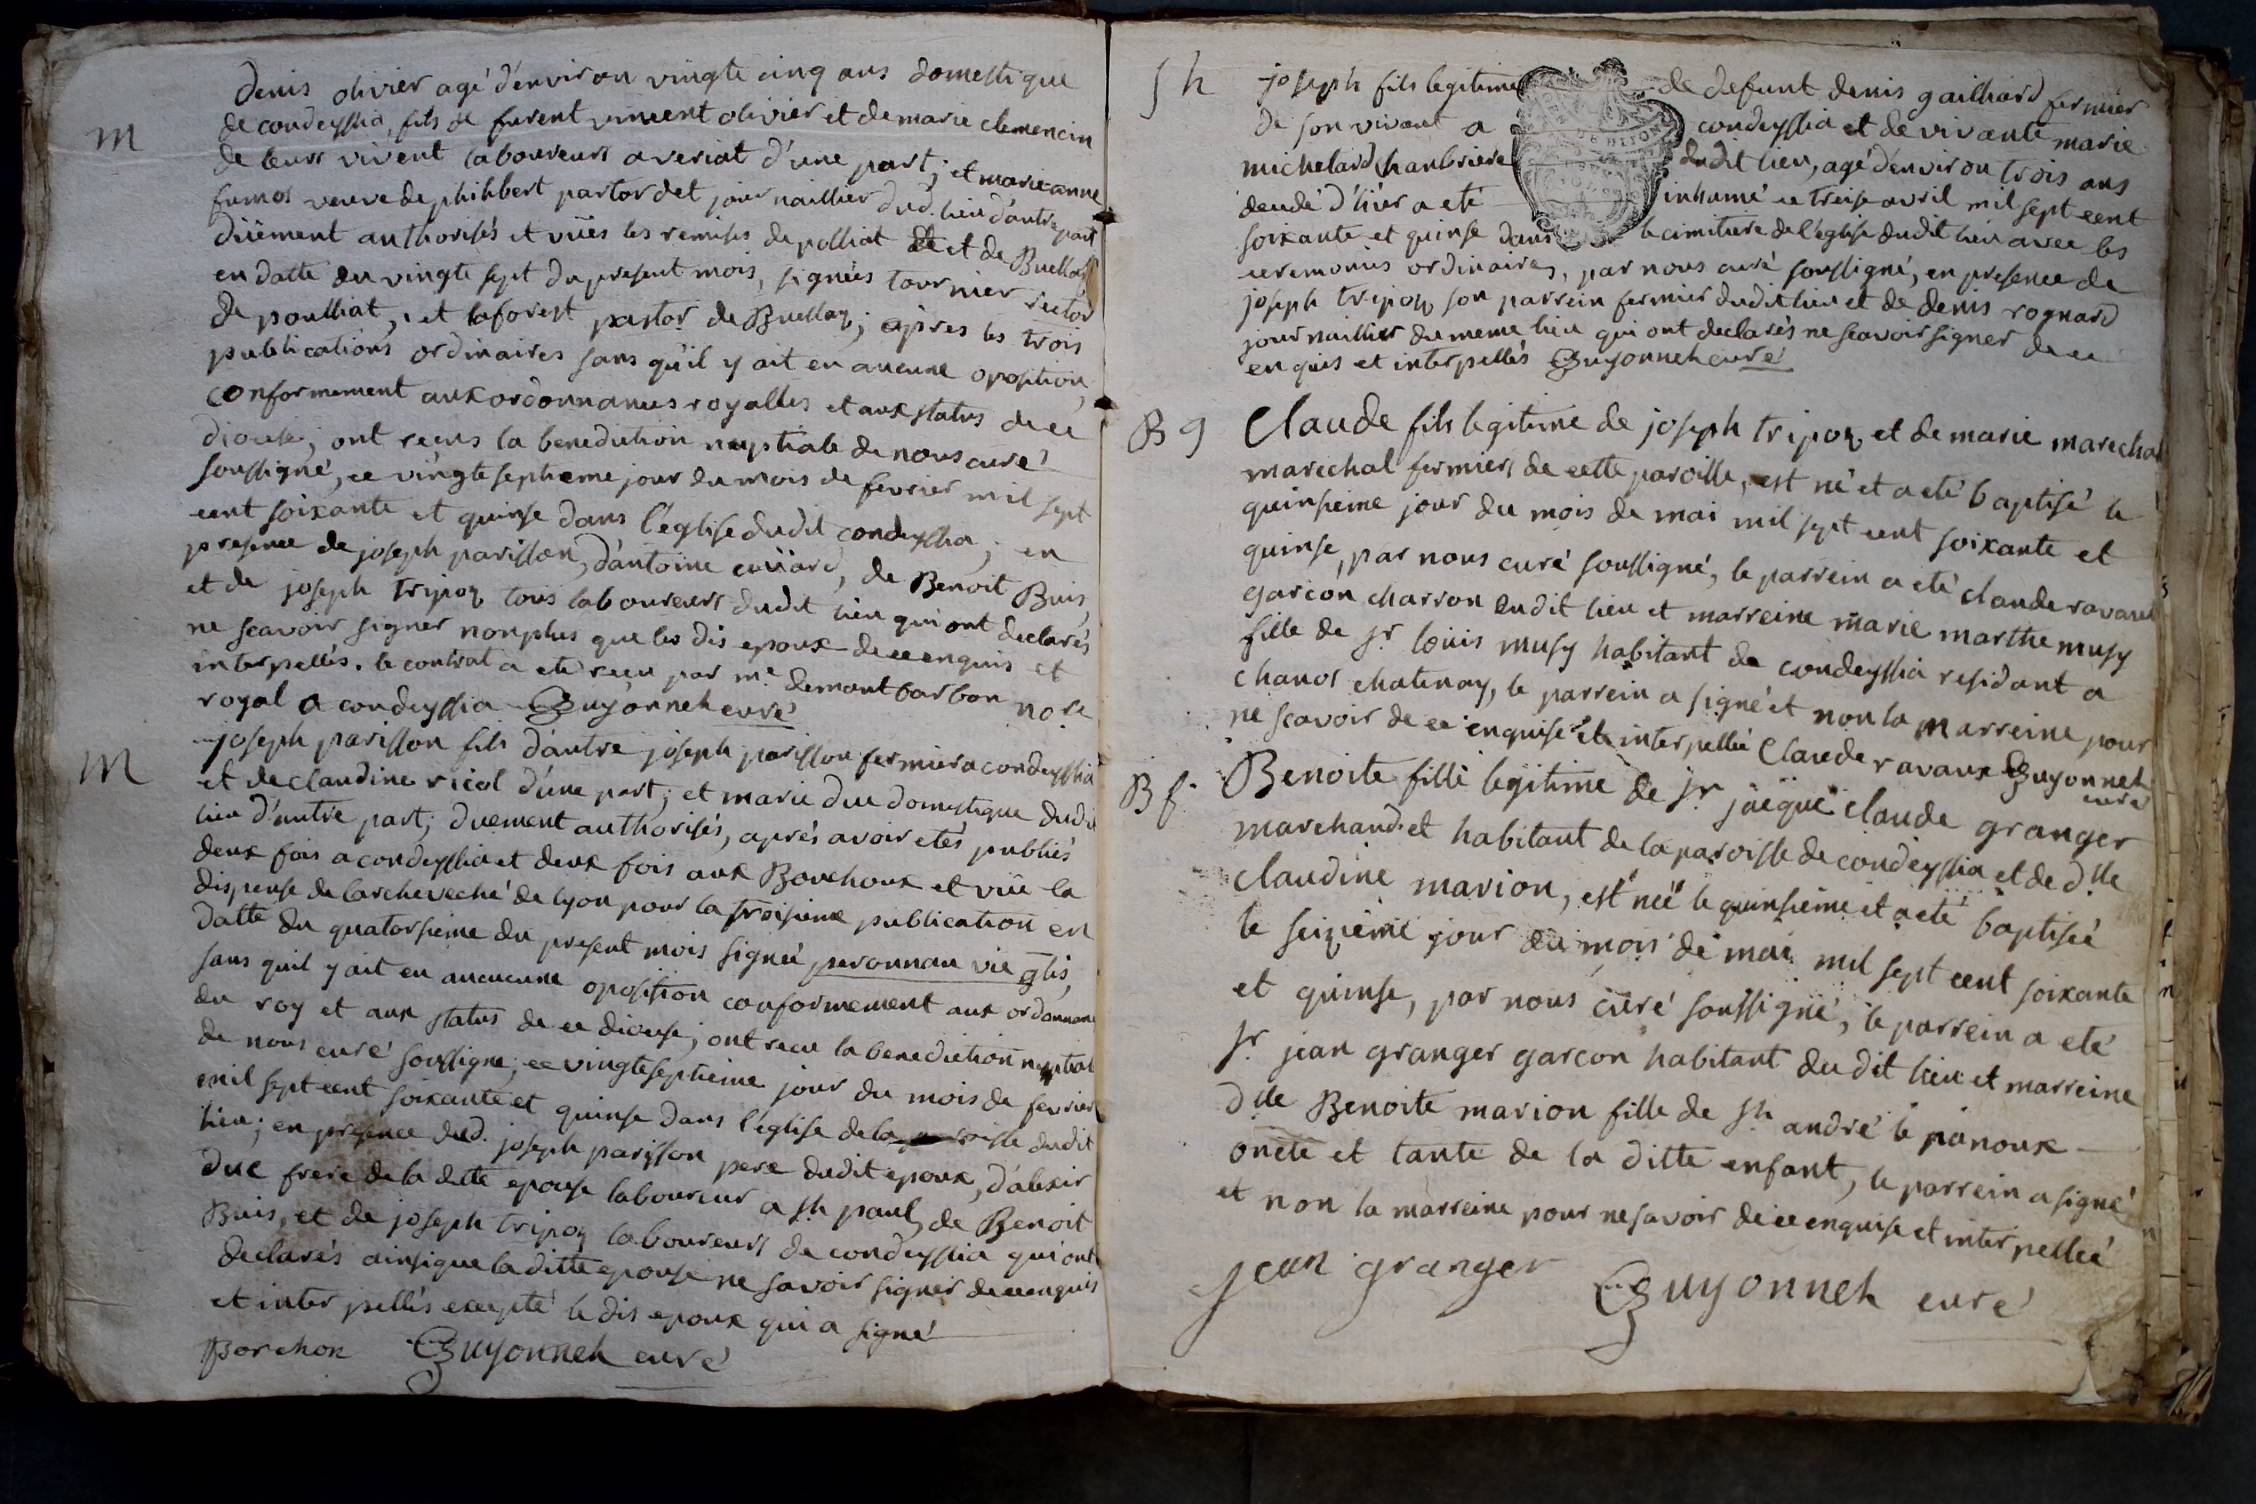 denis olivier agé d'environ vingte cinq ans domestique
M
de condeyssia, fils de furent vincent olivier et de marie clemencin
de leurs vivent laboureurs a veriat d'une part; et marie anne
fumos veuve de philibert partordet journaillier dud. lieu d'autre part
düement authorisés et vües les remises de polliat et de Buellas
en datte du vingte sept du present mois, signées tournier rector
de poulliat, et laforest pastor de Buellas; après les trois
publications ordinaires sans qu'il y ait eu aucune oposition,
conformement aux ordonnances royalles et aux status de ce
diocese; ont reçus la benediction nuptiale de nous curé
soussigné, ce vingte septieme jour du mois de fevrier mil sept
cent soixante et quinse dans l'église dudit condeyssia; en
presence de joseph parisson, d'antoine coüard, de Benoit Buis,
et de joseph tripoz tous laboureurs dudit lieu qui ont declarés
ne scavoir signer nonplus que les dis epoux de ce enquis et
interpellés. le contrat a eté reçu par me demontbarbon no.re
royal a condeyssia Guyonneh curé
M
joseph parisson fils d'autre joseph parisson fermier a condeyssia
et de claudine ricol d'une part; et marie duc domestique dudit
lieu d'autre part; duement authorisés, aprés avoir etés publiés
deux fois a condeyssia et deux fois aux Bouchoux et vüe la
dispense de larcheveché de lyon pour la troisieme publication en
datte du quatorsieme du present mois signée peronnau vic glis,
sans quil y ait eu aucucune oposition conformement aux ordonnan
du roy et aux status de ce diocese; ont recu la benediction nuptial
de nous curé soussigne; ce vingteseptieme jour du mois de fevrier
mil sept cent soixante et quinse dans l'église de la paroisse dudit
lieu; en presence dud. joseph parisson pere dudit epoux, d'alexir
duc frere de la ditte epouse laboureur a st paul, de Benoit
Buis, et de joseph tripoz laboureurs de condeyssia qui ont
declarés ainsi que la ditte epouse ne savoir signer de ce enquis
et inter pellés excepté le dis epoux qui a signé
Guyonneh curé
Sh
joseph fils legitime de defunt denis gailliard fermier
de son vivant a condeyssia et de vivante marie
michelard chanbriere dudit lieu, agé d'environ trois ans
decedé d'hier a eté inhumé ce treise avril mil sept cent
soixante et quinse dans le cimitiere de l'église dudit lieu avec les
ceremonies ordinaires, par nous curé soussigné, en presence de
joseph tripoz son parrein fermier dudit lieu et de denis rognard
journaillier du meme lieu qui ont declarés ne scavoir signer de ce
enquis et interpellés Guyonneh curé
B g
Claude fils legitime de joseph tripoz et de marie marechal
marechal fermiers de cette paroisse, est né et a eté baptisé le
quinsieme jour du mois de mai mil sept cent soixante et
quinse, par nous curé soussigné, le parrein a eté claude ravaux
garcon charron dudit lieu et marreine marie marthe musy
fille de sr. louis musy habitant de condeyssia residant a
chanos chatenay, le parrein a signé et non la marreine pour
ne scavoir de ce enquise et interpellée Claude ravaux Guyonneh
curé
B f.
Benoite fille legitime de sr. jacque claude granger
marchand et habitant de la paroisse de condeyssia et de dlle
claudine marion, est née le quinsieme et a eté baptisée
le seizieme jour du mois de mai mil sept cent soixante
et quinse, par nous curé soussigné, le parrein a eté
sr. jean granger garcon habitant du dit lieu et marreine
dlle Benoite marion fille de st andré le panoux
oncle et tante de la ditte enfant, le parrein a signé
et non la marreine pour ne savoir de ce enquise et inter pellée
jean granger Guyonneh curé